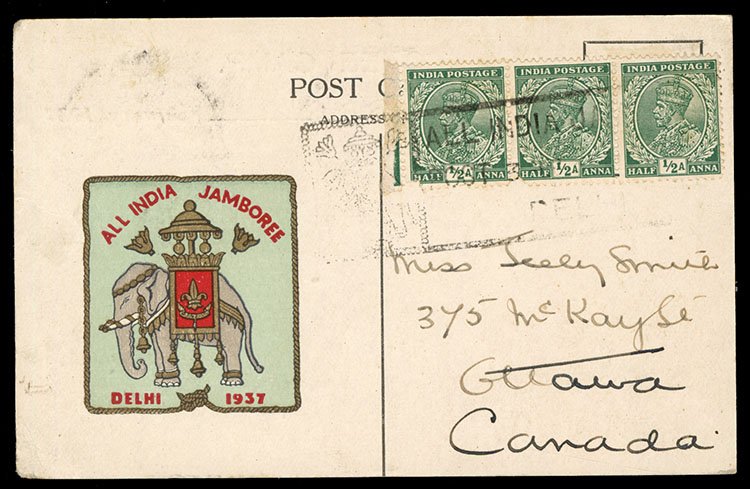 POST C
ADDRESS
INDIA POSTAGE INDIA POSTAGE INDIA POSTAGE
½A ½A ½A
HALF ANNA HALF ANNA HALF ANNA
ALL INDIA
DELHI
ALL INDIA JAMBOREE
DELHI 1937
Miss Smith
375 McKay St
Ottawa
Canada